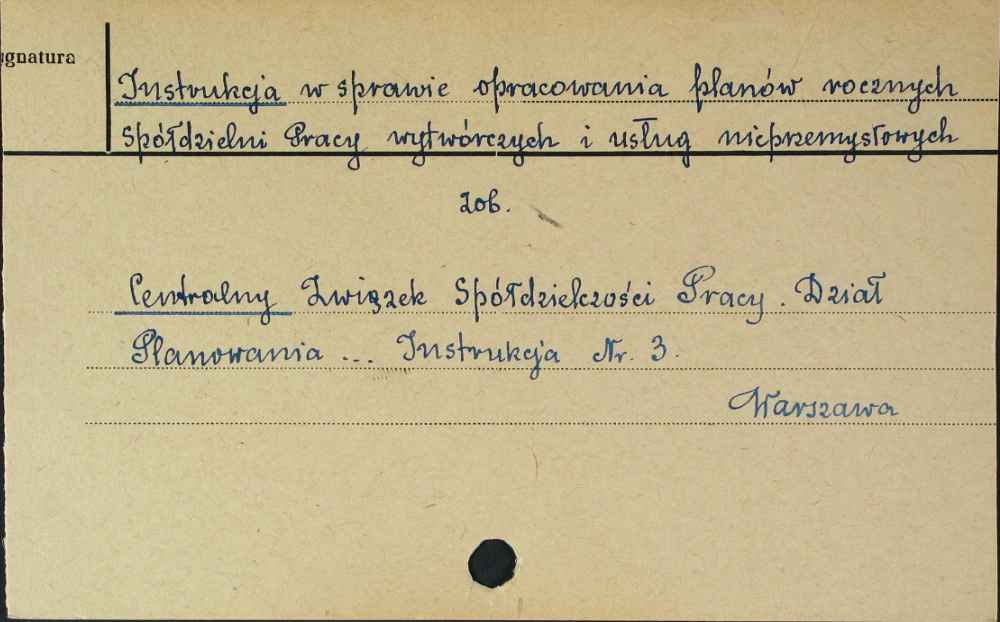 ygnatura
Instrukcja w sprawie opracowania planów rocznych
Spółdzielni Pracy wytwórczych i usług nieprzemysłowych
zob.
Centralny Związek Spółdzielczości Pracy. Dział
Planowania ... Instrukcja Nr. 3.
Warszawa